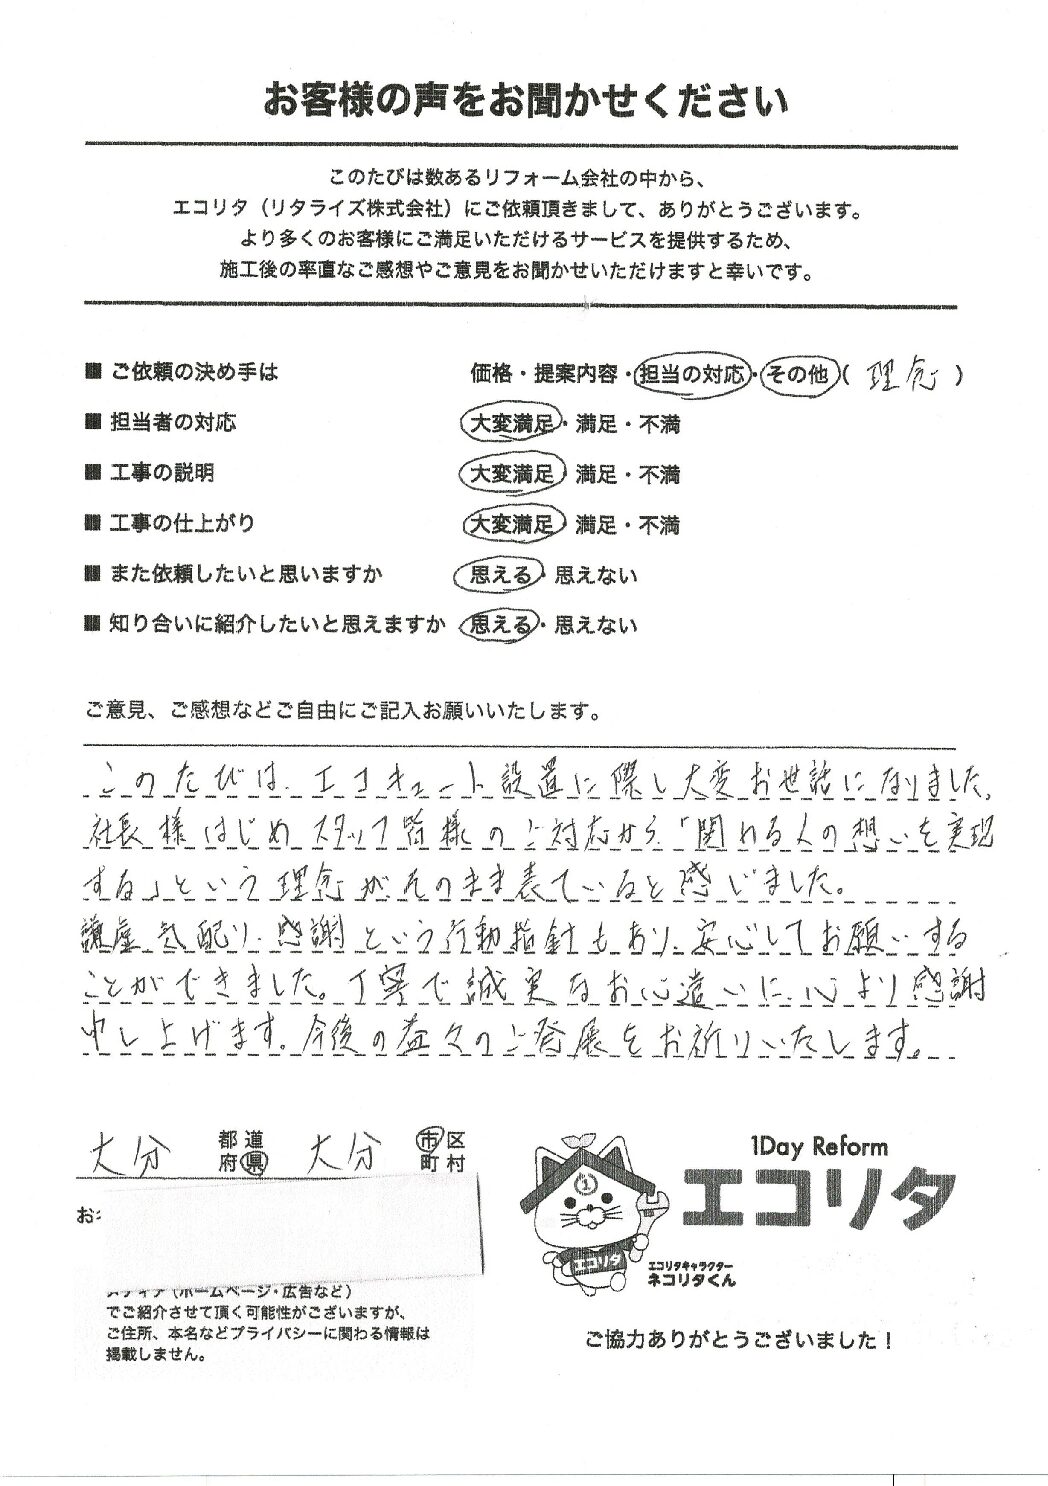 お客様の声をお聞かせください
このたびは数あるリフォーム会社の中から、
エコリタ（リタライズ株式会社）にご依頼頂きまして、ありがとうございます。
より多くのお客様にご満足いただけるサービスを提供するため、
施工後の率直なご感想やご意見をお聞かせいただけますと幸いです。
■ ご依頼の決め手は 価格・提案内容・担当の対応・その他（ 理念 ）
■ 担当者の対応 大変満足・満足・不満
■ 工事の説明 大変満足・満足・不満
■ 工事の仕上がり 大変満足・満足・不満
■ また依頼したいと思いますか 思える・思えない
■ 知り合いに紹介したいと思えますか 思える・思えない
ご意見、ご感想などご自由にご記入お願いいたします。
このたびは、エコキュート設置に際し大変お世話になりました。
社長様はじめスタッフ皆様のご対応から、「関わる人の想いを実現
する」という理念がそのまま表ていると感じました。
謙虚、気配り、感謝という行動指針もあり、安心してお願いする
ことができました。丁寧で誠実なお心遣いに、心より感謝
申し上げます。今後の益々のご発展をお祈りいたします。
大分 都道府県 大分 市区町村
お
メディア（ホームページ・広告など）
でご紹介させて頂く可能性がございますが、
ご住所、本名などプライバシーに関わる情報は
掲載しません。
1Day Reform
エコリタ
1
エコリタ
エコリタキャラクター
ネコリタくん
ご協力ありがとうございました！